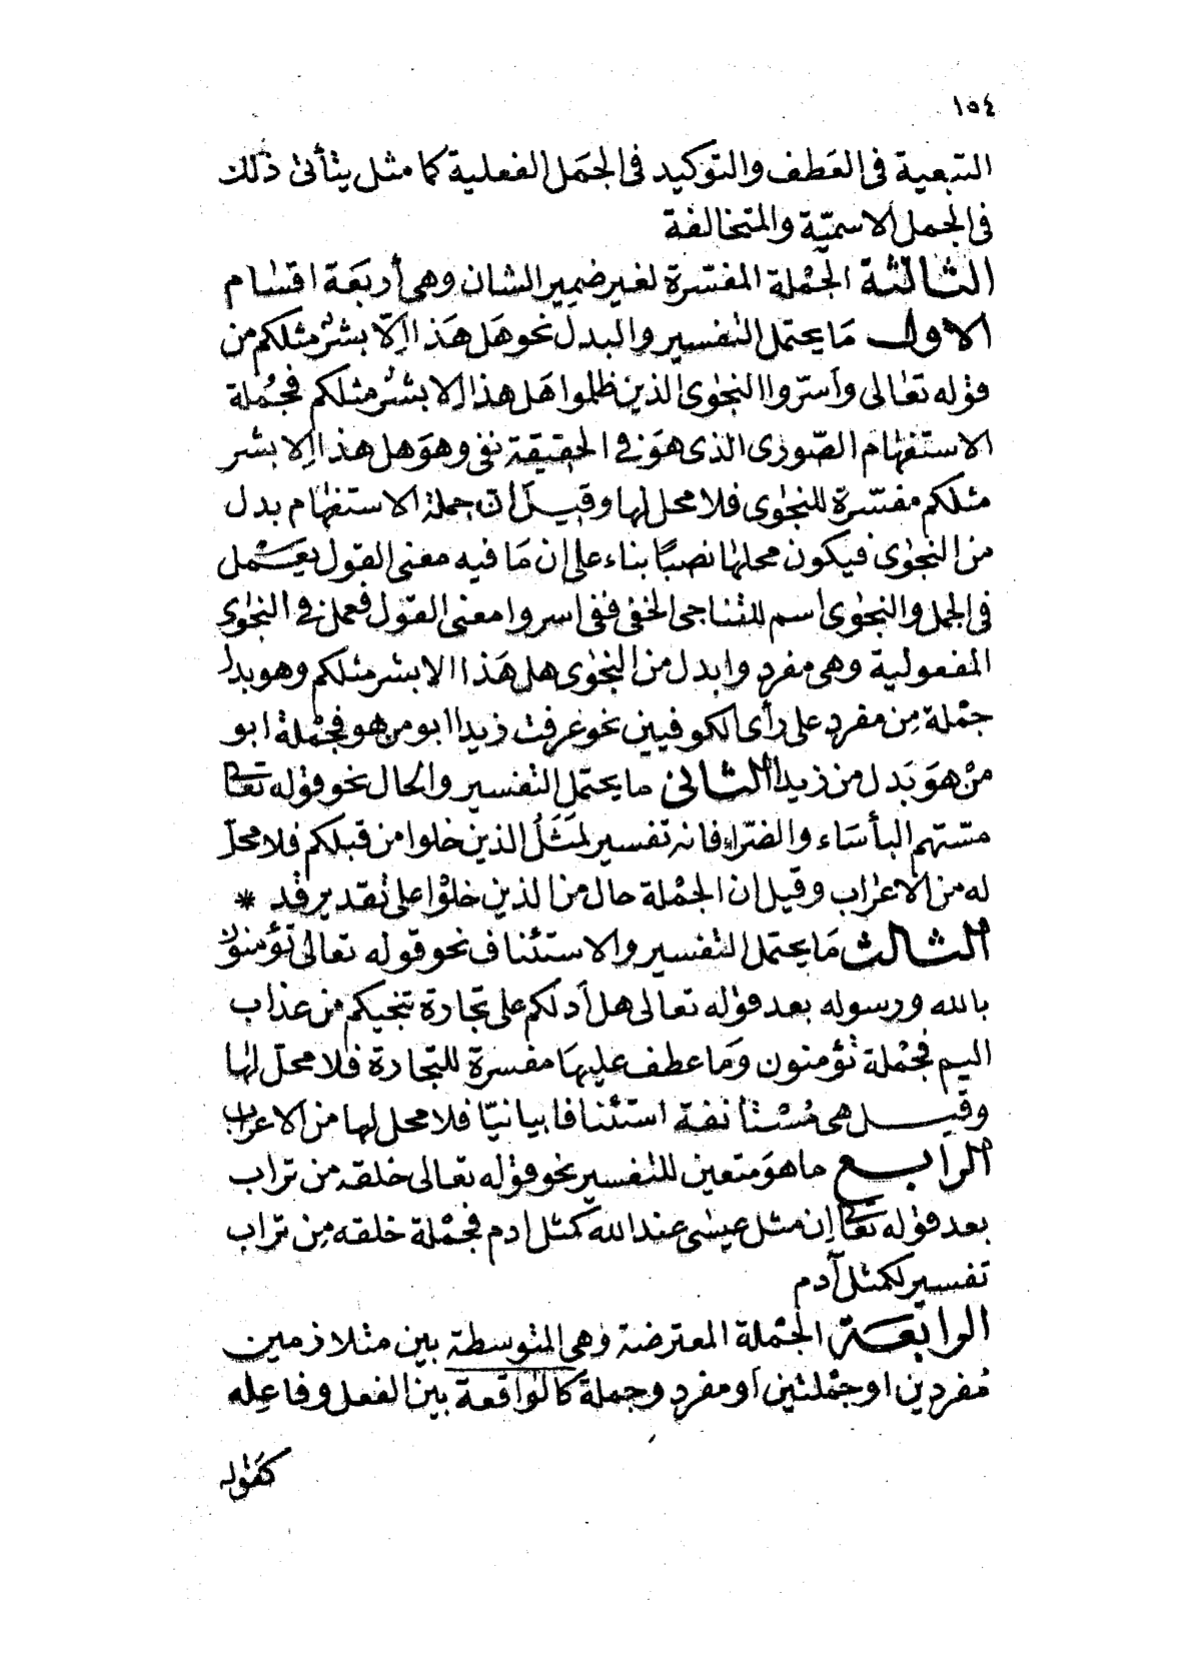 ١٥٤
التبعية فى العَطف والتوكيد فى الجمَل الفعلية كما مثل يتأتى ذلك
فى الجمل الاسميّة والمتخالفة
الثالثة الجمْلة المفسّرة لغير ضمير الشان وهى أربَعَة اقسام
الاول مَا يحتمل التفسير والبدل نحو هَل هَذا اِلّا بشرٌ مثلكم من
قوله تعالى وأسرّوا النجوى الذين ظلموا هَل هذا الا بشرٌ مثلكم فجُملة
الاستفهام الصّورى الذى هوَ فى الحقيقة نفى وهوَ هل هذا اِلا بشر
مثلكم مفسّرة للنجوى فلا محل لها وقيل أن جملة الاستفهام بدل
من النجوى فيكون محلها نصبًا بناء على ان مَا فيه معنى القول يعَمْل
فى الجمل والنجوى اسم للتناجى الخفى ففى اسروا معنى القوْل فعمل فى النجوى
المفعولية وهى مفرد وابدل من النجوى هل هَذا الا بشر مثلكم وهو بدل
جمْلة مِن مفرد على رأى الكوفيين نحو عَرفت زيدا ابو من هو فجمْلة ابو
منْ هوَ بَدل من زيدا الثانى ما يحتمل التفسير والحال نحو قوله تعالى
مسّتهم البأسَاء والضرّاء فانه تفسير لمَثَلُ الذين خلوا من قبلكم فلا محلّ
له من الاعراب وقيل ان الجمْلة حال من الذين خلوْا على تقدير قد *
الثالث مَا يحتمل التفسير والاستئناف نحو قوله تعالى تؤمنون
بالله ورسوله بعد قوله تعالى هل أدلكم على تجارة تنجيكم من عذاب
اليم فجمْلة تؤمنون وَما عطف عليهَا مفسرة للتجارة فلا محلّ لها
وقيل هى مُسْتأنفة استئنافا بيانيّا فلا محل لها من الاعراب
الرابع ما هوَ متعين للتفسير نحو قوله تعالى خلقه من تراب
بعد قوله تعالى اِن مثل عيسى عند الله كمثل ادم فجمْلة خلقه مِن تراب
تفسير لكمثل آدم
الرابعَة الجمْلة المعترضة وهى المتوسطة بين متلازمين
مُفردين او جمْلتين اَو مفرد وجملة كالواقعة بين الفعل وفاعِله
كقوله